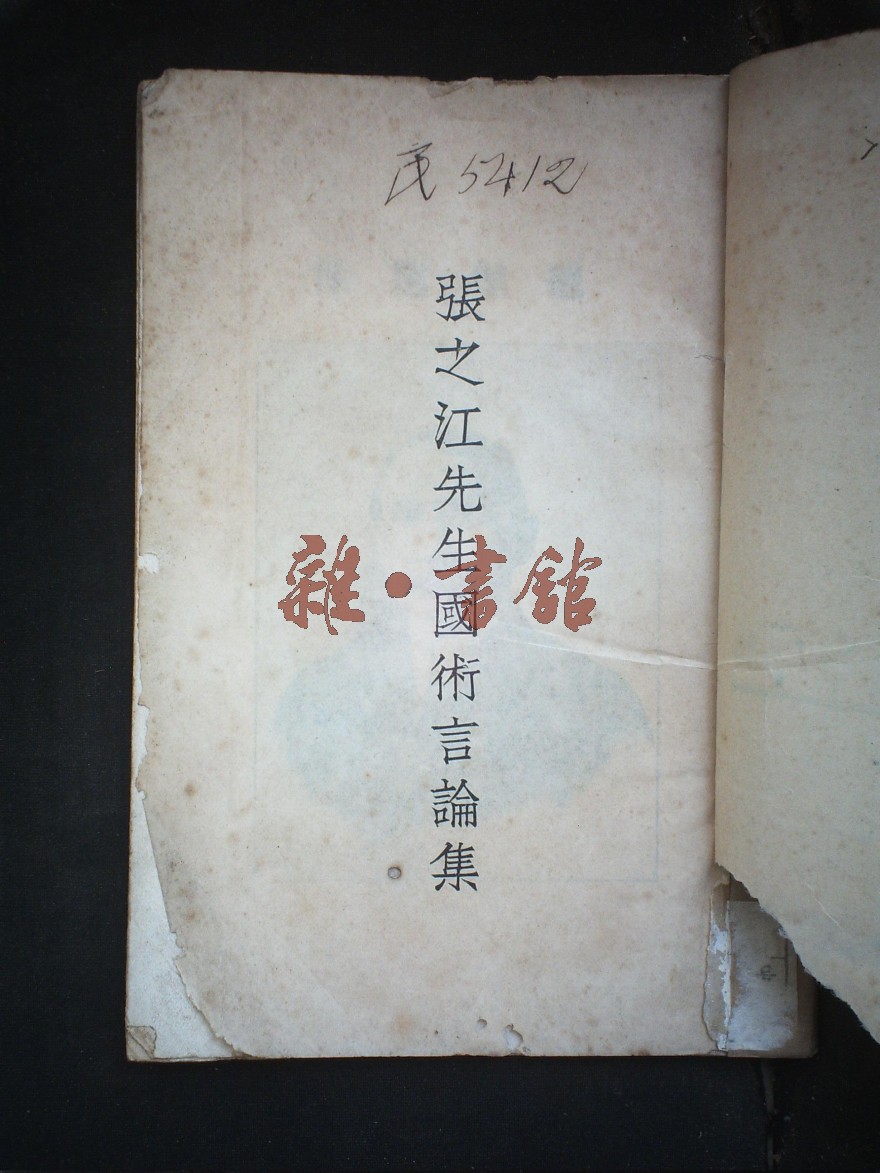 民 5412
張之江先生國術言論集
雜·書舘